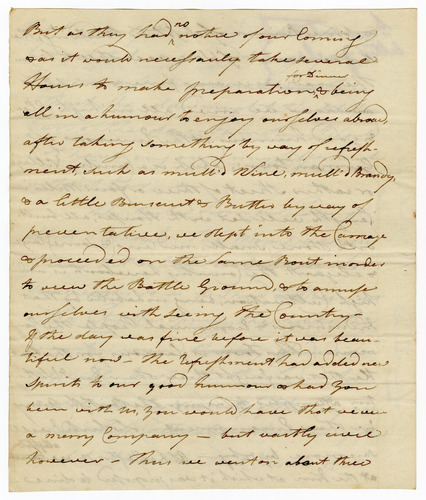 But as they had no notice of our Coming
& as it would necessarily take several
Hours to make preparation for Dinner & being
all in a humour to enjoy ourselves abroad
after taking something by way of refresh-
ment, such as mull'd Wine, mull'd Brandy,
& a little Buiscuit & Butter by way of
preventative, we stept into the Carriage
& proceeded on the same Rout in order
to view the Battle Ground, & to amuse
ourselves with seeing the Country -
If the day was fine before it was beau-
tiful now - the refreshment had added new
Spirits to our good humour & had You
been with us, you would have that we were
a merry Company - but vastly civil
however - thus we went on about three